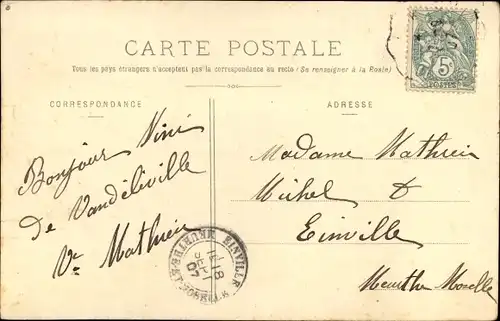 CARTE POSTALE
Tous les pays étrangers n'acceptent pas la correspondance au recto (Se renseigner à la Poste)
CORRESPONDANCE
ADRESSE
Bonjour
De Vandéléville
Ve Mathieu
Madame Mathieu
Michel
Einville
Meurthe Moselle
5c
POSTES
EINVILLE
MEURTHE-ET-MOSELLE
18
SEPT
07